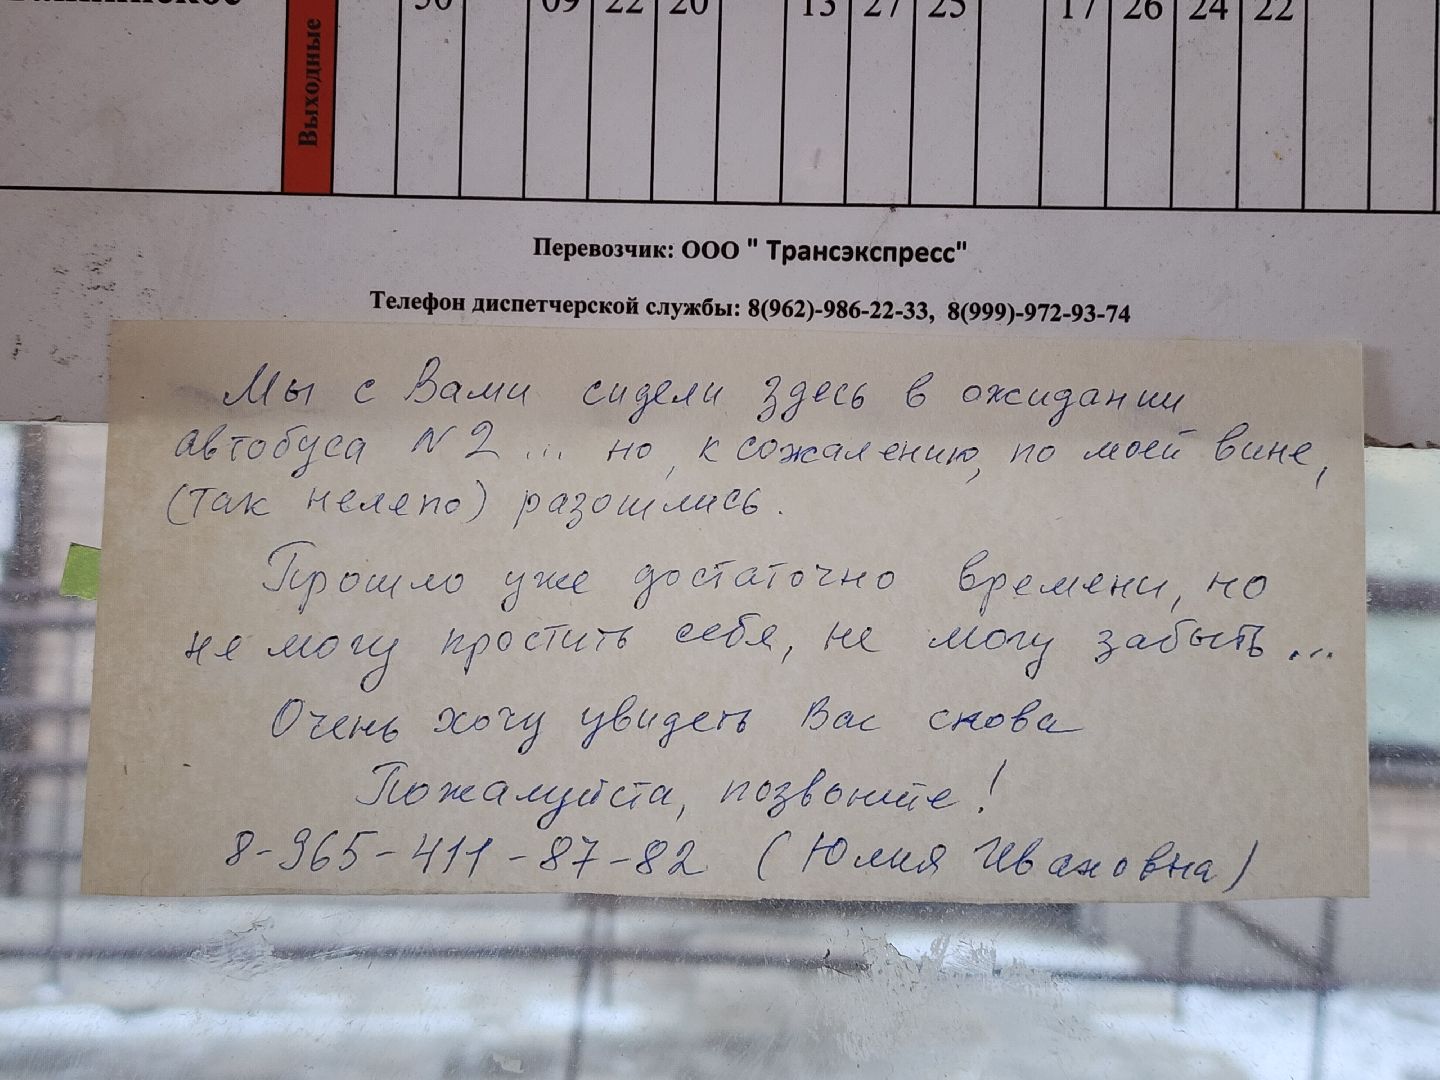 Выходные
30 09 22 20 13 27 25 17 26 24 22
Перевозчик: ООО " Трансэкспресс"
Телефон диспетчерской службы: 8(962)-986-22-33, 8(999)-972-93-74
Мы с Вами сидели здесь в ожидании
автобуса N2 ... но, к сожалению, по моей вине,
(так нелепо) разошлись.
Прошло уже достаточно времени, но
не могу простить себя, не могу забыть...
Очень хочу увидеть Вас снова
Пожалуйста, позвоните!
8-965-411-87-82 (Юлия Ивановна)